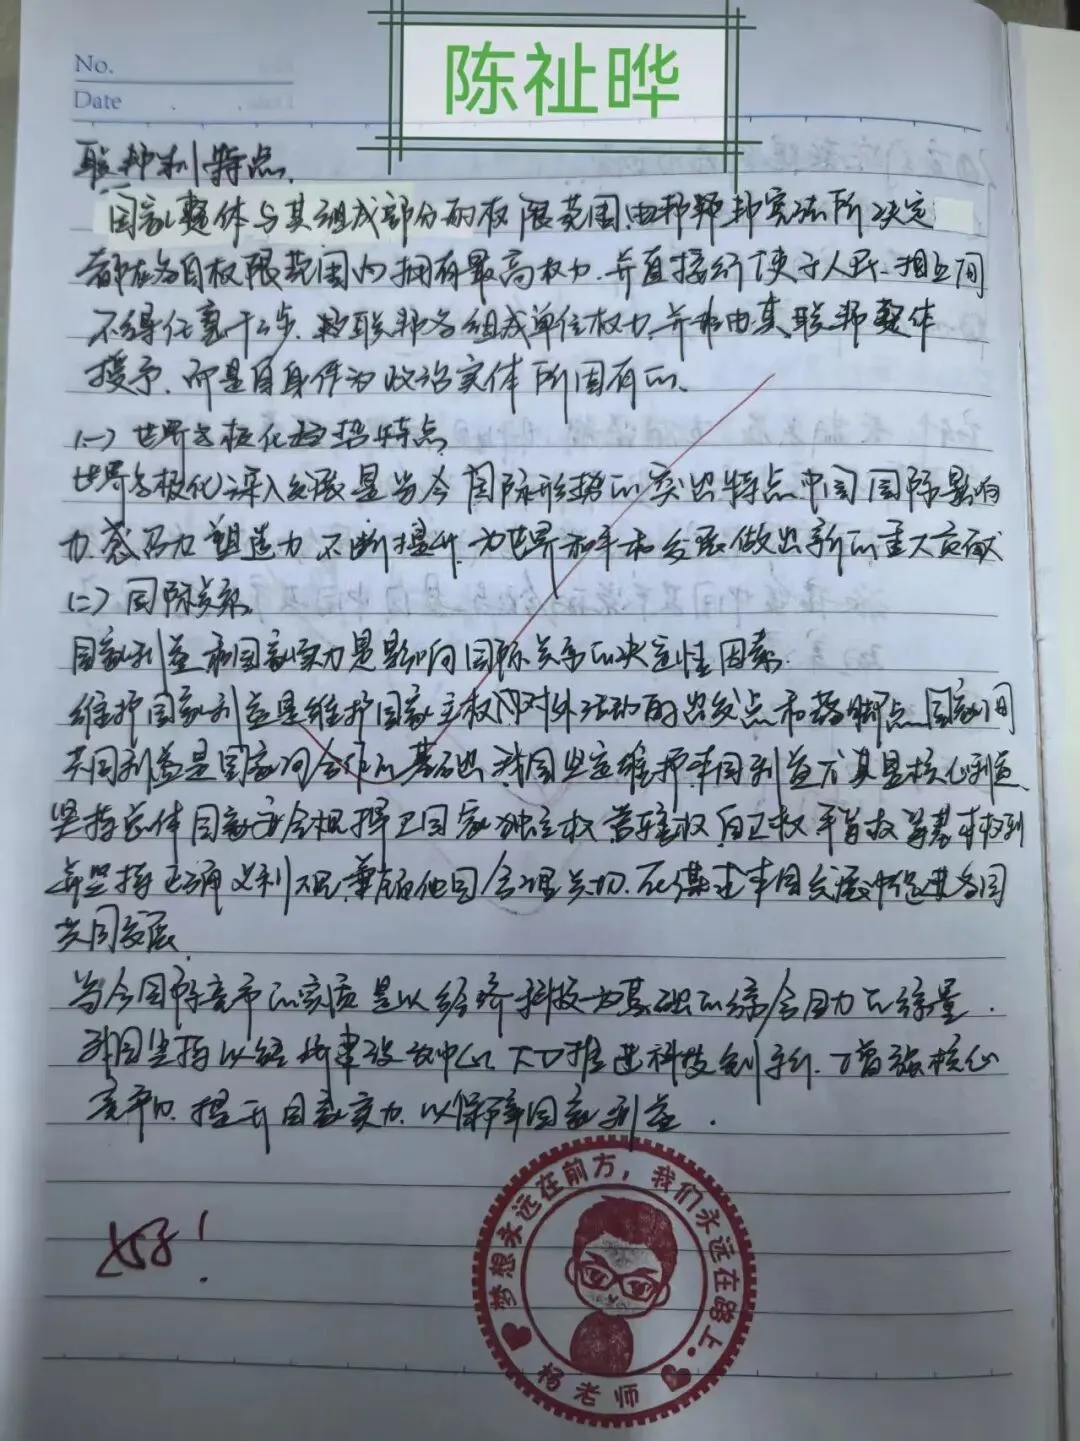 陈祉晔
No.
Date
联邦制特点.
国家整体与其组成部分的权限范围由联邦宪法所决定
都在各自权限范围内拥有最高权力.并直接行使于人民.相互间
不得任意干涉.联邦各组成单位权力并非由其联邦整体
授予.而是自身作为政治实体所固有的.
(一)世界多极化趋势特点
世界多极化深入发展是当今国际形势的突出特点中国国际影响
力.感召力塑造力不断提升.为世界和平和发展做出新的重大贡献
(二)国际关系.
国家利益和国家实力是影响国际关系的决定性因素.
维护国家利益是维护国家主权对外活动的出发点和落脚点国家间
共同利益是国家间合作的基础.我国坚定维护本国利益尤其是核心利益
坚持总体国家安全观捍卫国家独立权管辖权自卫权平等权等基本权利
坚持正确义利观,兼顾他国合理关切.在谋求本国发展中促进各国
共同发展
当今国际竞争的实质是以经济科技为基础的综合国力的较量.
我国坚持以经济建设为中心.大力推进科技创新.增强核心
竞争力.提升国家实力.以保障国家利益.
好!
梦想永远在前方，我们永远在路上.
杨老师